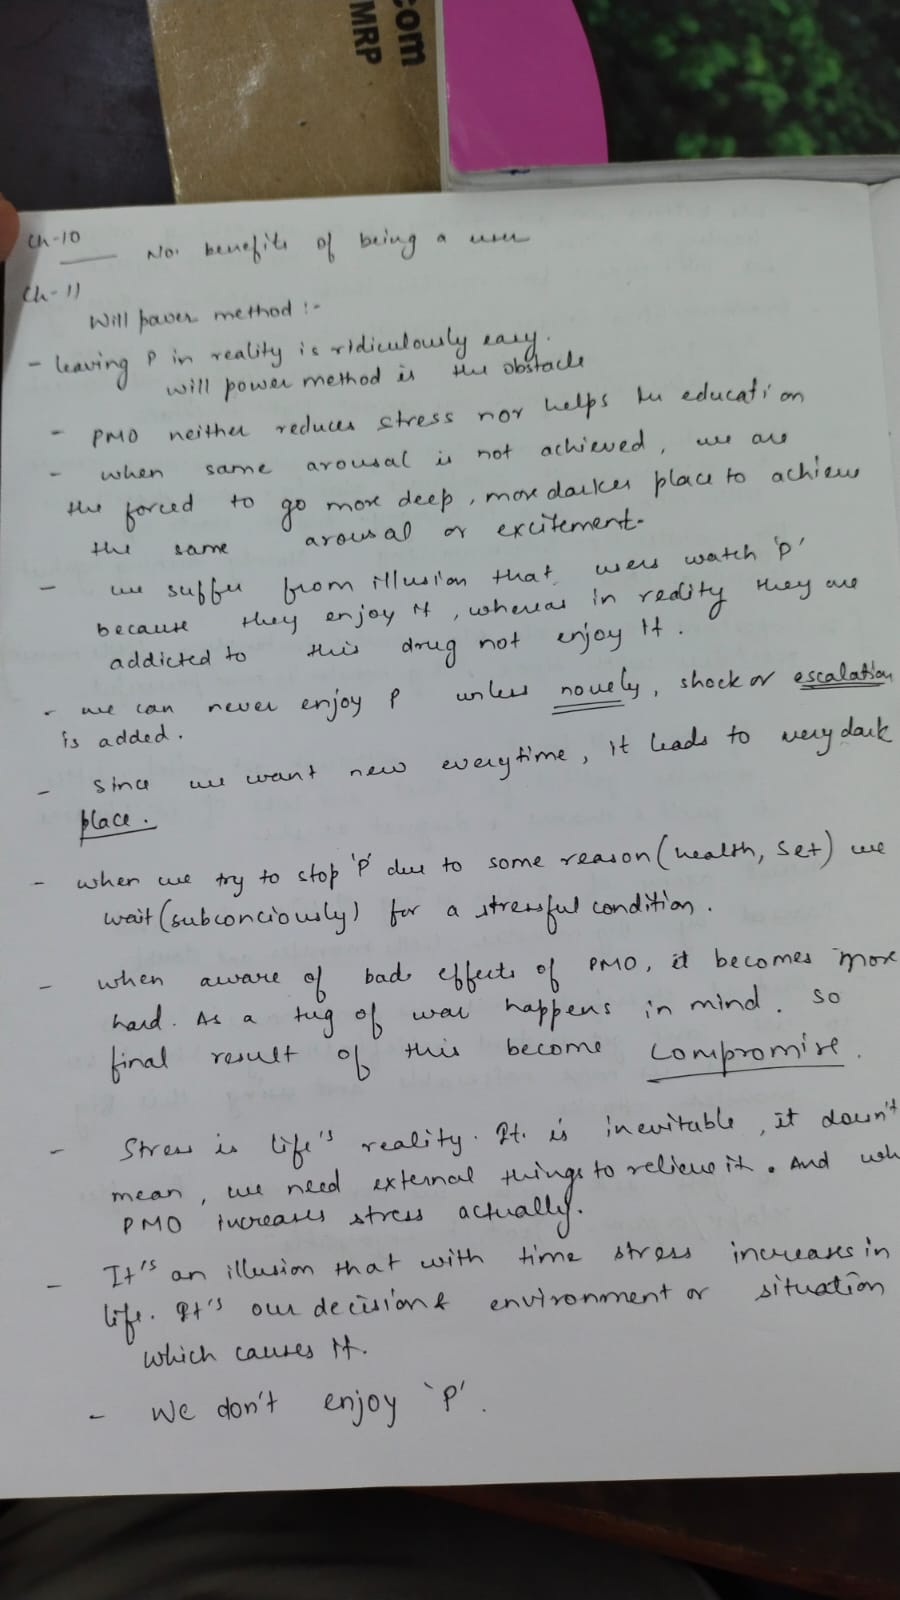 com
MRP
Ch-10
No. benefits of being a user
Ch-11
Will power method :-
- leaving P in reality is ridiculously easy.
will power method is the obstacle
- PMO neither reduces stress nor helps in education
- when same arousal is not achieved, we are
the forced to go more deep, more darker place to achieve
the same arousal or excitement.
- we suffer from illusion that users watch 'P'
because they enjoy it, whereas in reality they are
addicted to this drug not enjoy it.
- we can never enjoy P unless novely, shock or escalation
is added.
- Since we want new everytime, it leads to very dark
place.
- when we try to stop 'P' due to some reason (health, set) we
wait (subconciously) for a stressful condition.
- when aware of bad effects of PMO, it becomes more
hard. As a tug of war happens in mind. so
final result of this become compromise.
- Stress is life's reality. It is inevitable, it doesn't
mean, we need external things to relieve it. And
PMO increases stress actually.
- It's an illusion that with time stress increases in
life. It's our decision & environment or situation
which causes it.
- We don't enjoy 'P'.